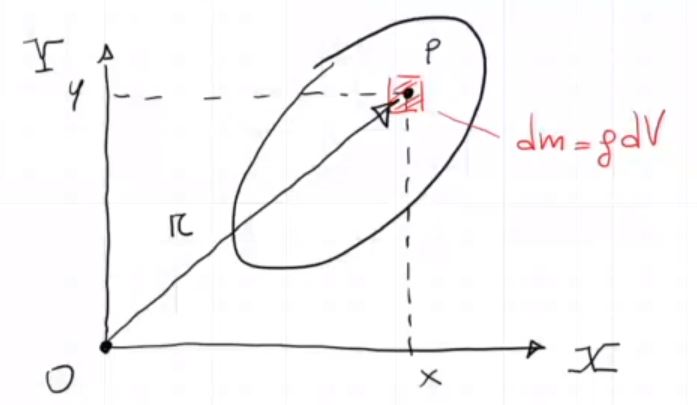 Y
P
y
dm = ρdV
r
O
x
X